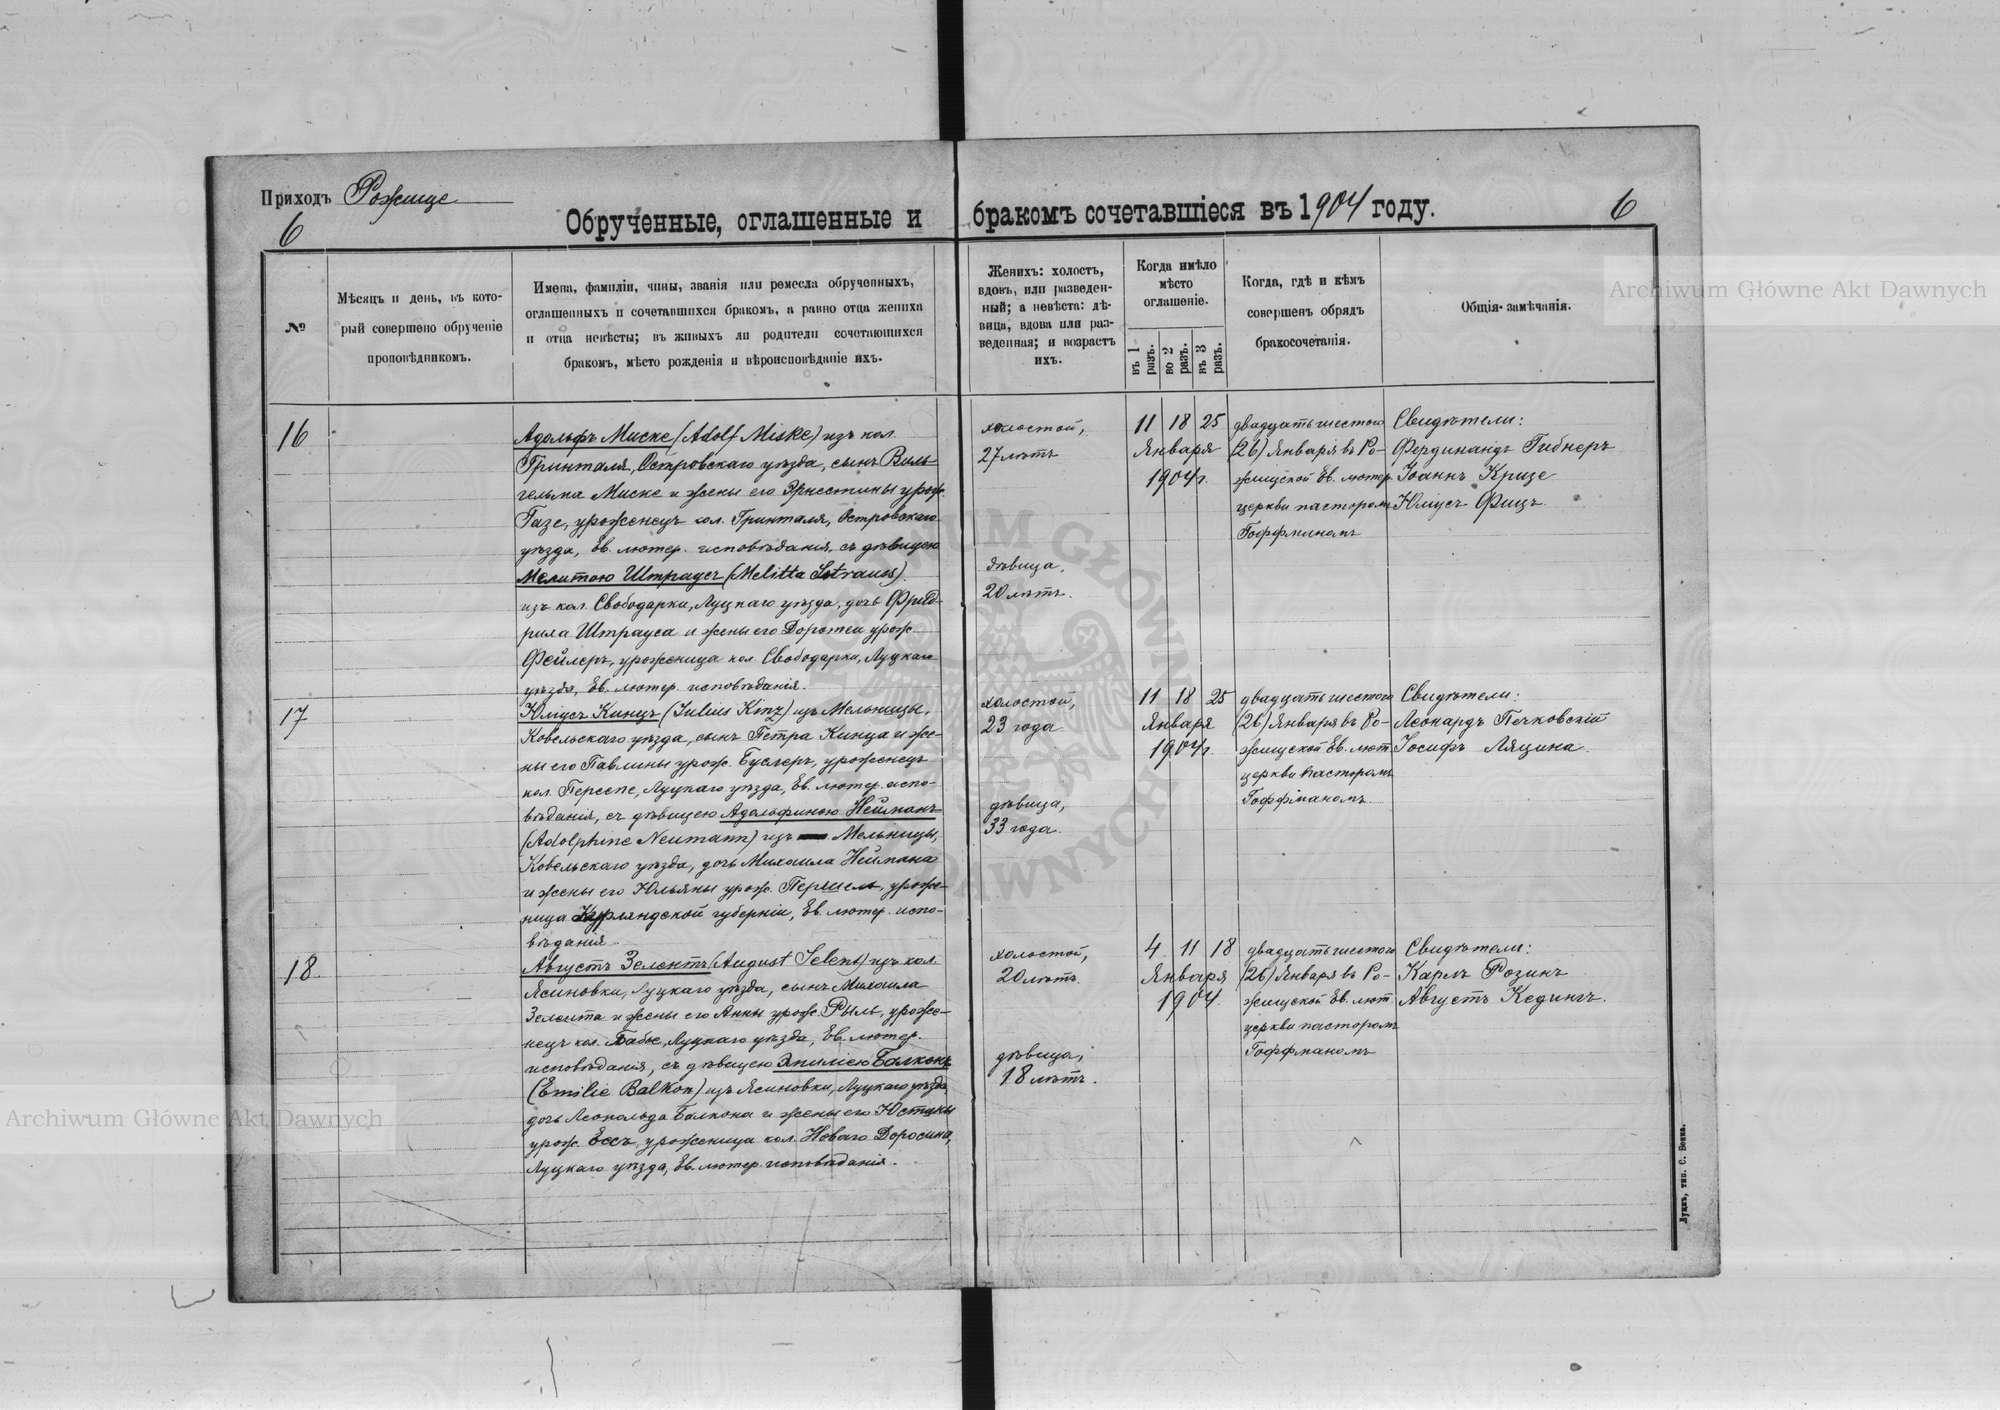 Приходъ Рожище
6
Обрученные, оглашенные и бракомъ сочетавшіеся въ 1904 году.
6
№
Мѣсяцъ и день, въ кото-
рый совершено обрученіе
проповѣдникомъ.
Имена, фамиліи, чины, званія или ремесла обрученныхъ,
оглашенныхъ и сочетавшихся бракомъ, а равно отца жениха
и отца невѣсты; въ живыхъ ли родители сочетающихся
бракомъ, мѣсто рожденія и вѣроисповѣданіе ихъ.
Женихъ: холостъ,
вдовъ, или разведен-
ный; а невѣста: дѣ-
вица, вдова или раз-
веденная; и возрастъ
ихъ.
Когда имѣло
мѣсто
оглашеніе.
въ 1 разъ.
во 2 разъ.
въ 3 разъ.
Когда, гдѣ и кѣмъ
совершенъ обрядъ
бракосочетанія.
Общія замѣчанія.
16
Адольфъ Миске (Adolf Miske) изъ кол.
Гринталя, Островскаго уѣзда, сынъ Виль-
гельма Миске и жены его Эрнестины урож.
Газе, уроженецъ кол. Гринталя, Островскаго
уѣзда, Ев. лютер. исповѣданія, съ дѣвицею
Мелитою Штраусъ (Melitta Strauss)
изъ кол. Свободарки, Луцкаго уѣзда, дочь Фрид-
риха Штрауса и жены его Доротеи урож.
Фейлеръ, уроженица кол. Свободарки, Луцкаго
уѣзда, Ев. лютер. исповѣданія.
холостой,
27 лѣтъ
дѣвица,
20 лѣтъ.
11 18 25
Января
1904 г.
двадцать шестого
(26) Января въ Ро-
жищской Ев. лютер.
церкви пасторомъ
Гоффманомъ
Свидѣтели:
Фердинандъ Гибнеръ
Іоаннъ Кризе
Юліусъ Фицъ.
17
Юліусъ Кинцъ (Julius Kinz) изъ Мельницы,
Ковельскаго уѣзда, сынъ Петра Кинца и же-
ны его Павлины урож. Буслеръ, уроженецъ
кол. Переспе, Луцкаго уѣзда, Ев. лютер. испо-
вѣданія, съ дѣвицею Адольфиною Нейманъ
(Adolphine Neumann) изъ Мельницы,
Ковельскаго уѣзда, дочь Михаила Неймана
и жены его Юльяны урож. Першель, уроже-
ница Курляндской губерніи, Ев. лютер. испо-
вѣданія.
холостой,
23 года
дѣвица,
33 года.
11 18 25
Января
1904 г.
двадцать шестого
(26) Января въ Ро-
жищской Ев. лют.
церкви пасторомъ
Гоффманомъ
Свидѣтели:
Леонардъ Печковскій
Іосифъ Ляцина.
18
Августъ Зелентъ (August Selent) изъ кол.
Ясиновки, Луцкаго уѣзда, сынъ Михаила
Зелента и жены его Анны урож. Рыль, уроже-
нецъ кол. Бабье, Луцкаго уѣзда, Ев. лютер.
исповѣданія, съ дѣвицею Эмиліею Балконъ
(Emilie Balkon) изъ Ясиновки, Луцкаго уѣзда,
дочь Леопольда Балкона и жены его Юстины
урож. Ессъ, уроженица кол. Новаго Доросина,
Луцкаго уѣзда, Ев. лютер. исповѣданія.
холостой,
20 лѣтъ.
дѣвица,
18 лѣтъ.
4 11 18
Января
1904.
двадцать шестого
(26) Января въ Ро-
жищской Ев. лют.
церкви пасторомъ
Гоффманомъ
Свидѣтели:
Карлъ Розинъ
Августъ Кедингъ.
Луцкъ, тип. С. Бонка.
Archiwum Główne Akt Dawnych
Archiwum Główne Akt Dawnych